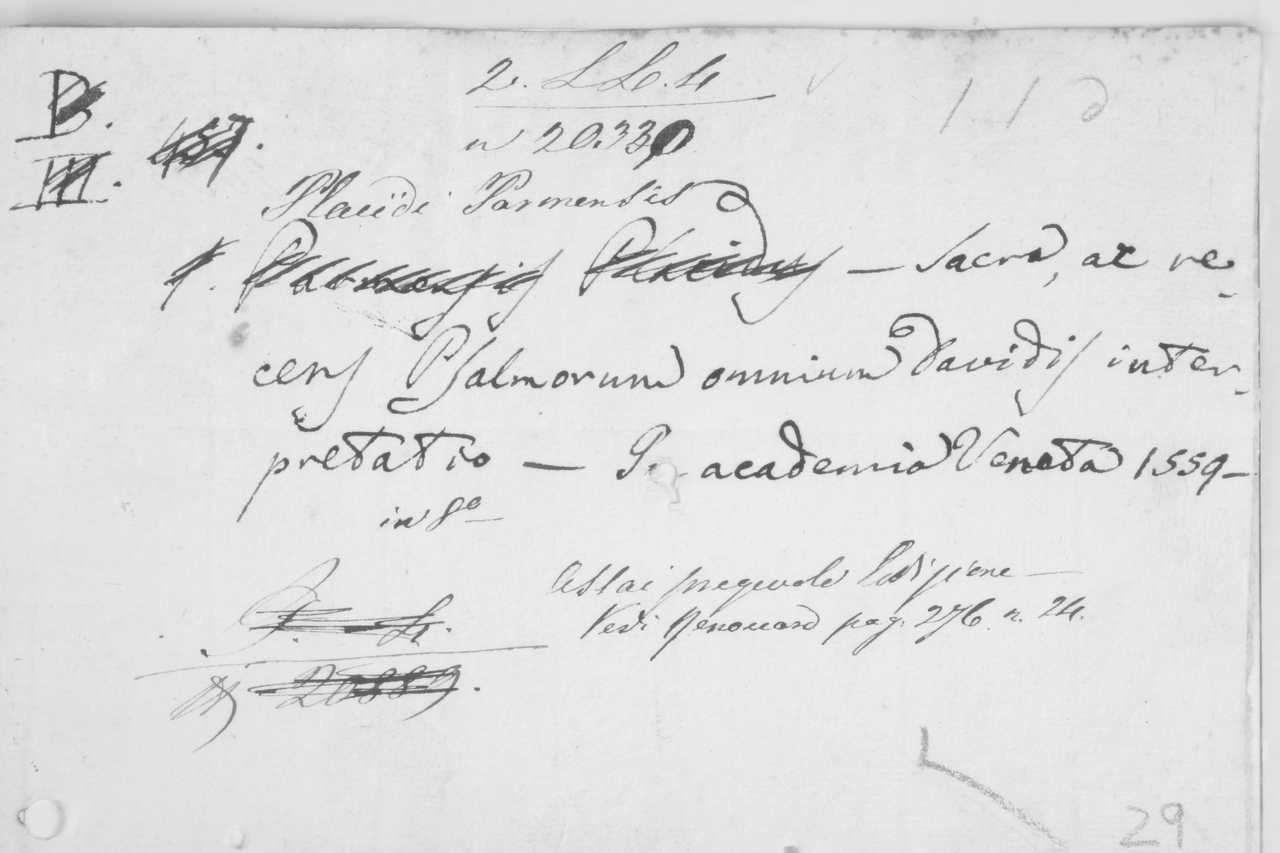 2. L L. 4
B.
n 20.330
157.
III.
Placidi Parmensis
— Sacra, ac re-
cens Psalmorum omnium Davidis inter-
pretatio — In academia Veneta 1559 —
in 8º
Assai pregevole Edizione —
Vedi Renouard pag. 276. n. 24.
29